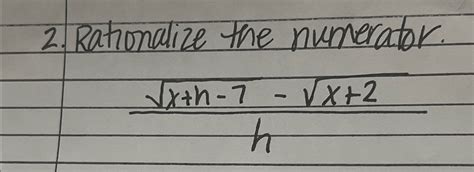 2. Rationalize the numerator.
√x+h-7 - √x+2
h